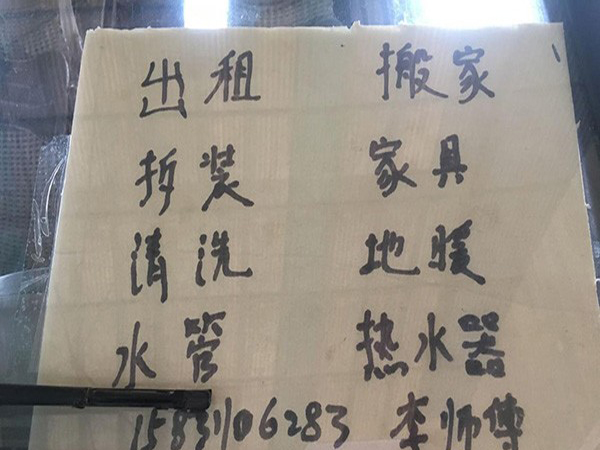 出租 搬家
拆装 家具
清洗 地暖
水管 热水器
15831106283 李师傅